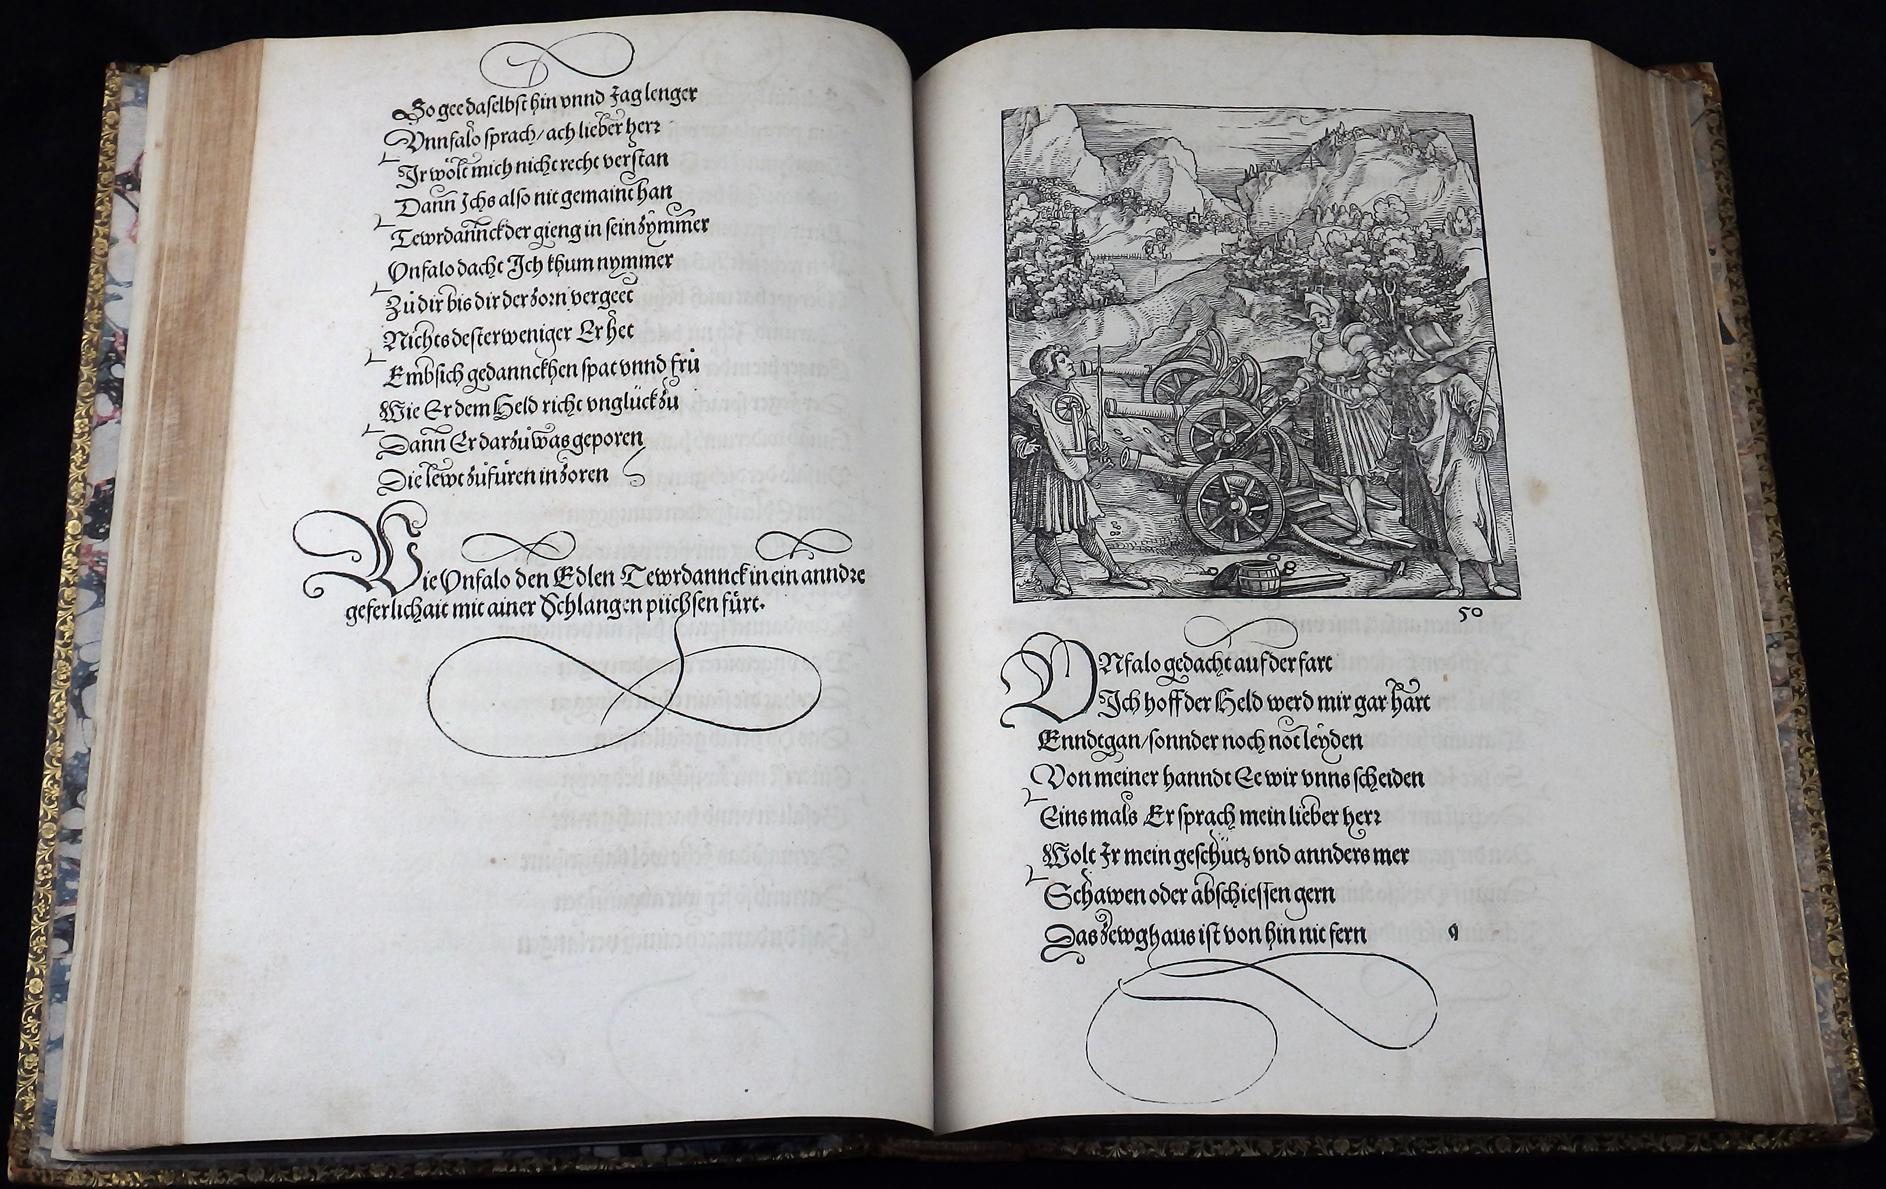 So gee daselbst hin vnnd Jag lenger
Vnnfalo sprach/ ach lieber herr
Ir wölt mich nicht recht verstan
Dann Ichs also nit gemaint han
Tewrdannckder gieng in sein zymmer
Vnfalo dacht Ich khum nymmer
Zů dir bis dir der zorn vergeet
Nichts dester weniger Er het
Embsich gedannckhen spat vnnd frů
Wie Er dem Held richt vnglück zu
Dann Er darzů was geporen
Die lewt zůfüren in zoren
Wie Vnfalo den Edlen Tewrdannck in ein anndre
geferlichait mit ainer Schlangen püchsen fürt.
50
VNfalo gedacht auf der fart
Ich hoff der Held werd mir gar hart
Enndtgan/ sonnder noch not leyden
Von meiner hanndt Ee wir vnns scheiden
Eins mals Er sprach mein lieber herr
Wolt Ir mein geschütz vnd annders mer
Schawen oder abschiessen gern
Das zewghaus ist von hin nit fern q